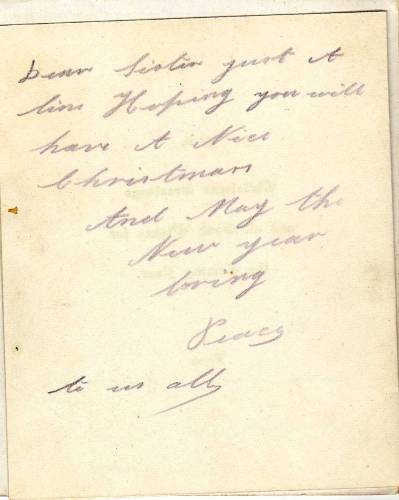 Dear Sister just A
line Hoping you will
have A Nice
Christmas
And May the
New year
bring
Peace
to us all